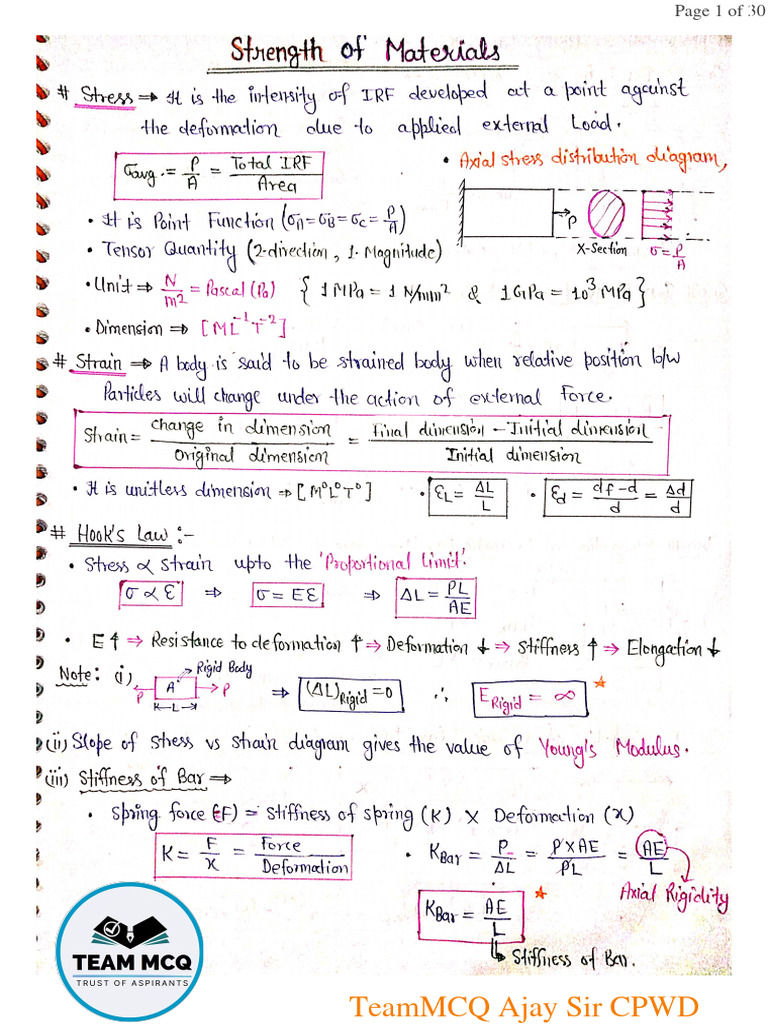 Page 1 of 30
Strength of Materials
# Stress → It is the intensity of IRF developed at a point against
the deformation due to applied external Load.
σavg. = P/A = Total IRF/Area
• Axial stress distribution diagram,
P
X-Section
σ = P/A
• It is Point Function (σA = σB = σC = P/A)
• Tensor Quantity (2-direction, 1-Magnitude)
• Unit ⇒ N/m² = Pascal (Pa) { 1 MPa = 1 N/mm² & 1 GPa = 10³ MPa }
• Dimension ⇒ [ML⁻¹T⁻²].
# Strain → A body is said to be strained body when relative position b/w
Particles will change under the action of external Force.
Strain = change in dimension/Original dimension = Final dimension - Initial dimension/Initial dimension
• It is unitless dimension → [M⁰L⁰T⁰] • ƐL = ΔL/L • Ɛd = df-d/d = Δd/d
# Hook's Law :-
• Stress ∝ Strain upto the 'Proportional Limit'.
σ ∝ Ɛ ⇒ σ = EƐ ⇒ ΔL = PL/AE
• E↑ ⇒ Resistance to deformation ↑ ⇒ Deformation ↓ ⇒ Stiffness ↑ ⇒ Elongation ↓
Note: (i) Rigid Body
P A P ⇒ (ΔL)Rigid = 0 ∴ ERigid = ∞
L
(ii) Slope of Stress vs Strain diagram gives the value of Young's Modulus.
(iii) Stiffness of Bar ⇒
• Spring force (F) = Stiffness of Spring (K) X Deformation (x)
K = F/x = Force/Deformation
• KBar = P/ΔL = P X AE/PL = AE/L
Axial Rigidity
KBar = AE/L
Stiffness of Bar.
TEAM MCQ
TRUST OF ASPIRANTS
TeamMCQ Ajay Sir CPWD